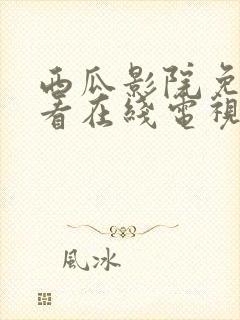 西瓜影院免
看在綫電視
風冰